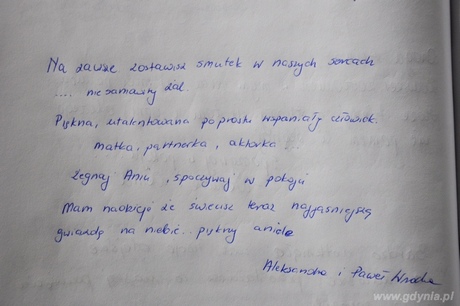 Na zawsze zostawisz smutek w naszych sercach
.... niesamowity żal.
Piękna, utalentowana po prostu wspaniały człowiek.
matka, partnerka, aktorka...
Żegnaj Aniu, spoczywaj w pokoju
Mam nadzieję że świecisz teraz najjaśniejszą
gwiazdą na niebie... piękny aniele
Aleksandra i Paweł
www.gdynia.pl